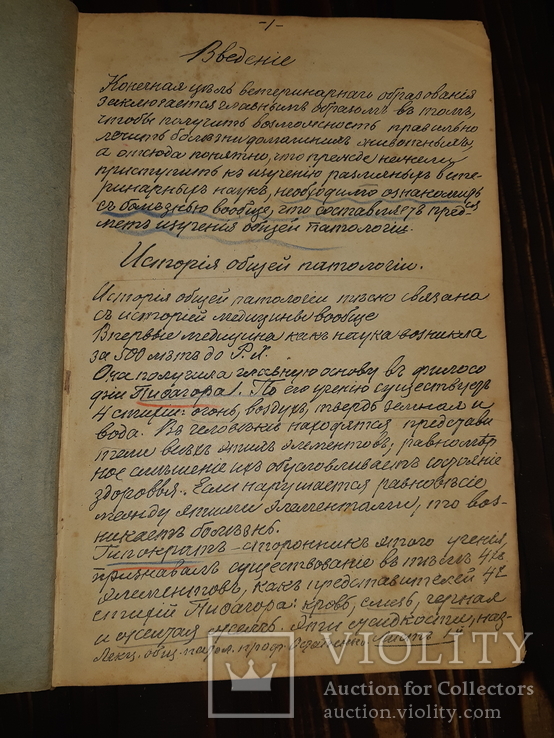 -1-
Введенiе
Конечная цѣль ветеринарнаго образованiя
заключается главнымъ образомъ въ томъ,
чтобы получить возможность правильно
лечить болѣзни домашнихъ животныхъ,
а отсюда понятно, что прежде нежели
приступить къ изученiю различныхъ вете-
ринарныхъ наукъ, необходимо ознакомиться
съ болѣзнью вообще, что составляетъ пред-
метъ изученiя общей патологiи.
Исторiя общей патологiи.
Исторiя общей патологiи тѣсно связана
съ исторiей медицины вообще
Впервые медицина какъ наука возникла
за 500 лѣтъ до Р.Х.
Она получила главную основу въ филосо
фiи Пифагора. По его ученiю существуетъ
4 стихiи: огонь, воздухъ, твердь земная и
вода. Въ человѣкѣ находятся представи
тели всѣхъ этихъ элементовъ, равномѣр
ное смѣшенiе ихъ обусловливаетъ состоянiе
здоровья. Если нарушается равновѣсiе
между этими элементами, то воз-
никаетъ болѣзнь.
Гипократъ - сторонникъ этого ученiя,
признавалъ существованiе въ тѣлѣ 4хъ
элементовъ, какъ представителей 4хъ
стихiй Пифагора: кровь, слизь, черная
и желтая желчь. Эти жидкости, наз-
Лекц. общ. патол. проф. Листъ 1й
VIOLITY
Auction for Collectors
auction.violity.com